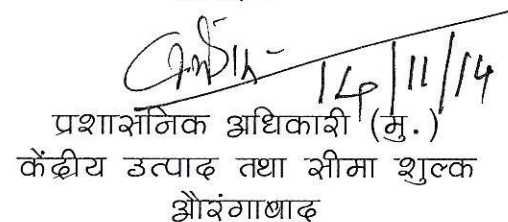 14/11/14
प्रशासनिक अधिकारी (मु.)
केंद्रीय उत्पाद तथा सीमा शुल्क
औरंगाबाद